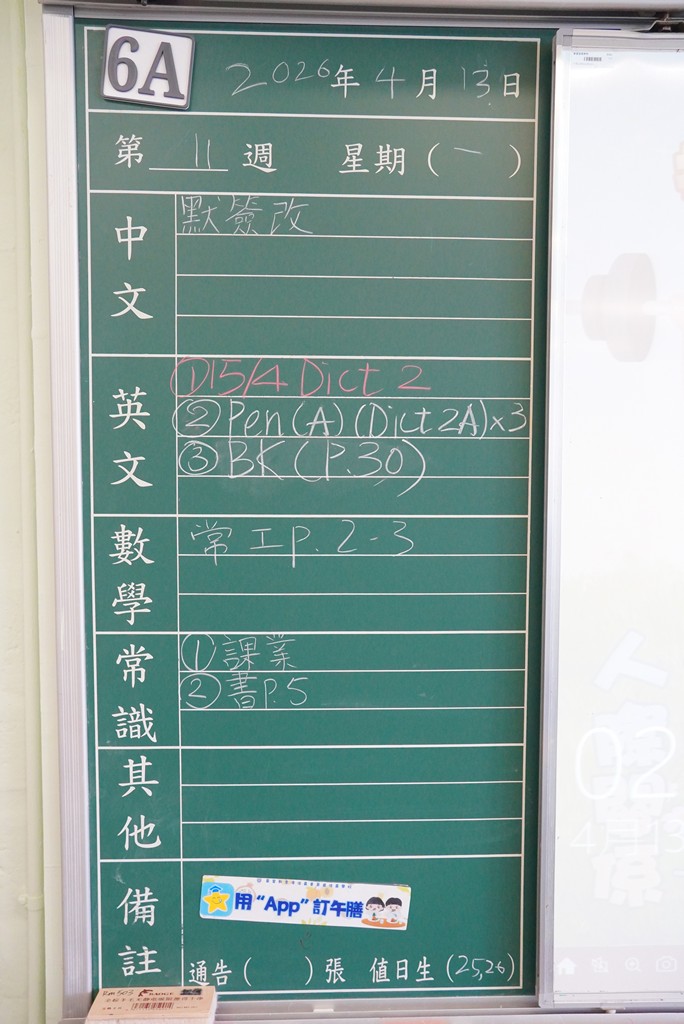 6A
2026年4月13日
第 11 週 星期(一)
中文
默簽改
英文
①15/4 Dict 2
②Pen(A)(Dict 2A)×3
③BK(P.30)
數學
常工p.2-3
常識
①課業
②書P.5
其他
備註
用“App”訂午膳
通告( )張 值日生(25,26)
Rm 503
02
4月13